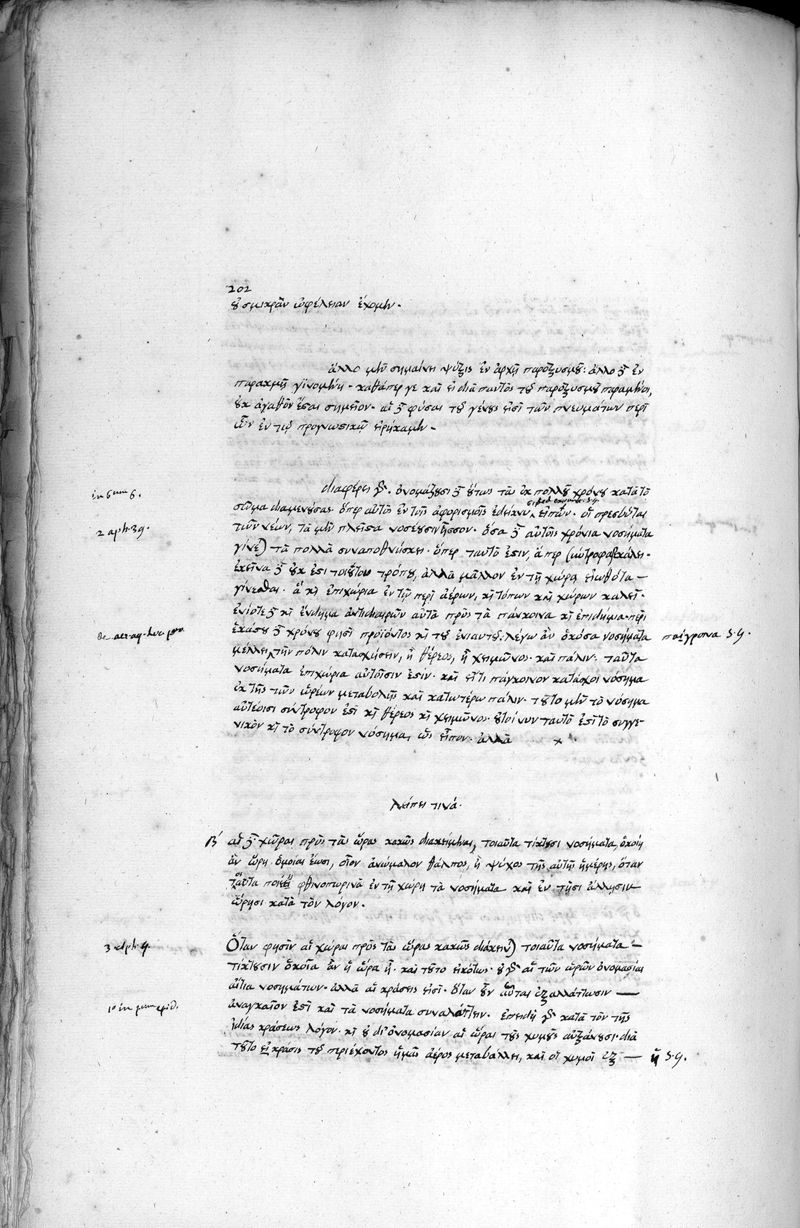 202
οὐ σμικρὰν ὠφέλειαν ἔχομεν.
ἄλλο μὲν σημαίνει ψύξις ἐν ἀρχῇ παροξυσμοῦ· ἄλλο δὲ ἐν
παρακμῇ γινομένη. καθάπερ γε καὶ εἰ διὰ παντὸς τοῦ παροξυσμοῦ παραμένοι,
οὐκ ἀγαθὸν ἔσται σημεῖον. αἱ δὲ φύσαι τοῦ γένους εἰσὶ τῶν πνευμάτων περὶ
ὧν ἐν τῷ προγνωστικῷ εἰρήκαμεν.
διαφέρει γὰρ. ὀνομάζουσι δὲ οὕτως τὰς ἐκ πολλοῦ χρόνου κατὰ τὸ
σῶμα διαμενούσας ὅπερ αὐτὸς ἐν τοῖς ἀφορισμοῖς εἰπών. οἱ πρεσβῦται
2 aph. 39.
τῶν νέων, τὰ μὲν πλεῖστα νοσέουσιν ἧσσον. ὅσα δὲ αὐτοῖς χρόνια νοσήματα
γίνεται τὰ πολλὰ συναποθνήσκει. ὅπερ ταυτό ἐστιν, ἅπερ σύντροφα καλεῖ.
ἐκεῖνα δὲ οὐκ ἔστι τοιούτου τρόπου, ἀλλὰ μᾶλλον ἐν τῇ χώρᾳ εἰωθότα
γίνεσθαι. ἃ καὶ ἐπιχώρια ἐν τῷ περὶ ἀέρων, καὶ τόπων καὶ χώρων καλεῖ.
ἐνίοτε δὲ καὶ ἔνδημα ἀντιδιαιρῶν αὐτὰ πρὸς τὰ πάγκοινα καὶ ἐπιδήμια. περὶ
ἑκάστου δὲ χρόνου φησὶ προϊόντος καὶ τοῦ ἐνιαυτοῦ. λέγω ἂν ὁκόσα νοσήματα
μέλλει τὴν πόλιν κατασχήσειν, ἢ θέρεος, ἢ χειμῶνος. καὶ πάλιν. ταῦτα
νοσήματα ἐπιχώρια αὐτοῖσιν ἐστιν. καὶ εἴ τι πάγκοινον κατάσχοι νόσημα
ἐκ τῆς τῶν ὡρέων μεταβολῆς καὶ κατωτέρω πάλιν. τοῦτο μὲν τὸ νόσημα
αὐτέοισι σύντροφον ἐστὶ καὶ θέρεος καὶ χειμῶνος. οὕτοι νυν ταυτό ἐστι τὸ συγγε-
νικὸν καὶ τὸ σύντροφον νόσημα, ὡς εἶπον. ἀλλὰ ×
λείπει τινά.
β΄ αἱ δὲ χῶραι πρὸς τὰς ὥρας κακῶς διακείμεναι, τοιαῦτα τίκτουσι νοσήματα, ὁκοίη
ἂν ὥρη ὁμοίαι ἔωσι, οἷον ἀνώμαλον θάλπος, ἢ ψύχος τῆς αὐτῆς ἡμέρης, ὅταν
τοιαῦτα ποιέῃ φθινοπωρινὰ ἐν τῇ χώρῃ τὰ νοσήματα καὶ ἐν τῇσι ἄλλῃσιν
ὥρῃσι κατὰ τὸν λόγον.
3 aph. 4.
Ὅταν φησὶν αἱ χῶραι πρὸς τὰς ὥρας κακῶς διάκεινται τοιαῦτα νοσήματα
τίκτουσιν ὁκοῖα ἂν ἡ ὥρα ᾖ. καὶ τοῦτο εἰκότως. οὐ γὰρ αἱ τῶν ὡρῶν ὀνομασίαι
αἴτια νοσημάτων. ἀλλὰ αἱ κράσεις εἰσί. ὅταν οὖν αὗται ἐξαλλάττωσιν
ἀναγκαῖον ἐστὶ καὶ τὰ νοσήματα συναλάττειν. ἐπειδὴ γὰρ κατὰ τὸν τῆς
ἰδίας κράσεως λόγον. καὶ οὐ δι' ὀνομασίαν αἱ ὧραι τοὺς χυμοὺς αὐξάνουσι. διὰ
τοῦτο εἰ κράσις τοῦ περιέχοντος ἡμᾶς ἀέρος μεταβάλλει, καὶ οἱ χυμοὶ ἐξ